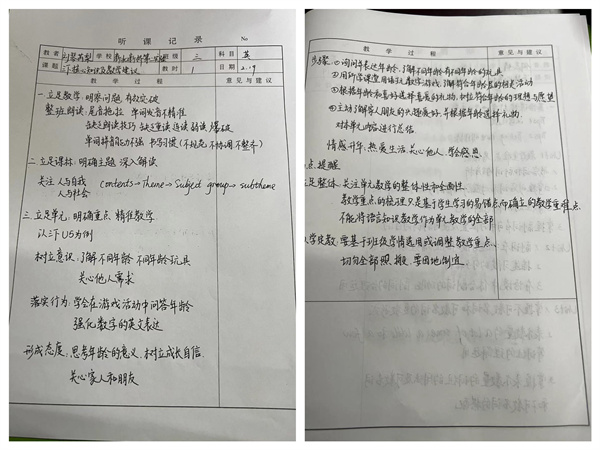 听课记录
No
教者
学校
班级
三
科目
英
课题
三下核心知识及教学建议
教时
1
日期
2.9
教 学 过 程
意见与建议
一.立足教学,明察问题,有效突破
整班朗读:尾音拖拉 单词发音不精准
缺乏朗读技巧 缺乏重读 连读 弱读 爆破
单词拼背能力不强 书写习惯(不规范 不协调 不整齐)
二.立足课标,明确主题,深入解读
关注 人与自我 contents→Theme→Subject group→subtheme
人与社会
三.立足单元,明确重点,精准教学
以三下U5为例
树立意识:了解不同年龄 不同年龄玩具
关心他人需求
落实行为:学会在游戏活动中问答年龄
强化数字的英文表达
形成态度:思考年龄的意义,树立成长自信
关心家人和朋友
教 学 过 程
意见与建议
步骤:①询问年长达年龄,了解不同年龄有不同年龄的玩具
②用所学课堂用语玩数学游戏,了解符合年龄且的相关活动
③根据年龄和喜好选择喜爱的礼物,树立符合年龄的理想与愿望
④主动了解家人朋友的兴趣爱好,并根据年龄选择礼物
对本单元内容进行总结
情感升华:热爱生活,关心他人,学会感恩
点提醒
立足整体:关注单元教学的整体性和全面性
教学重点的梳理只是基于学生学习的易错点而确立的教学重难点
不能将语言知识教学作为单元教学的全部
要基于班级学情选用或调整教学重点
切勿全部照搬,要因地制宜